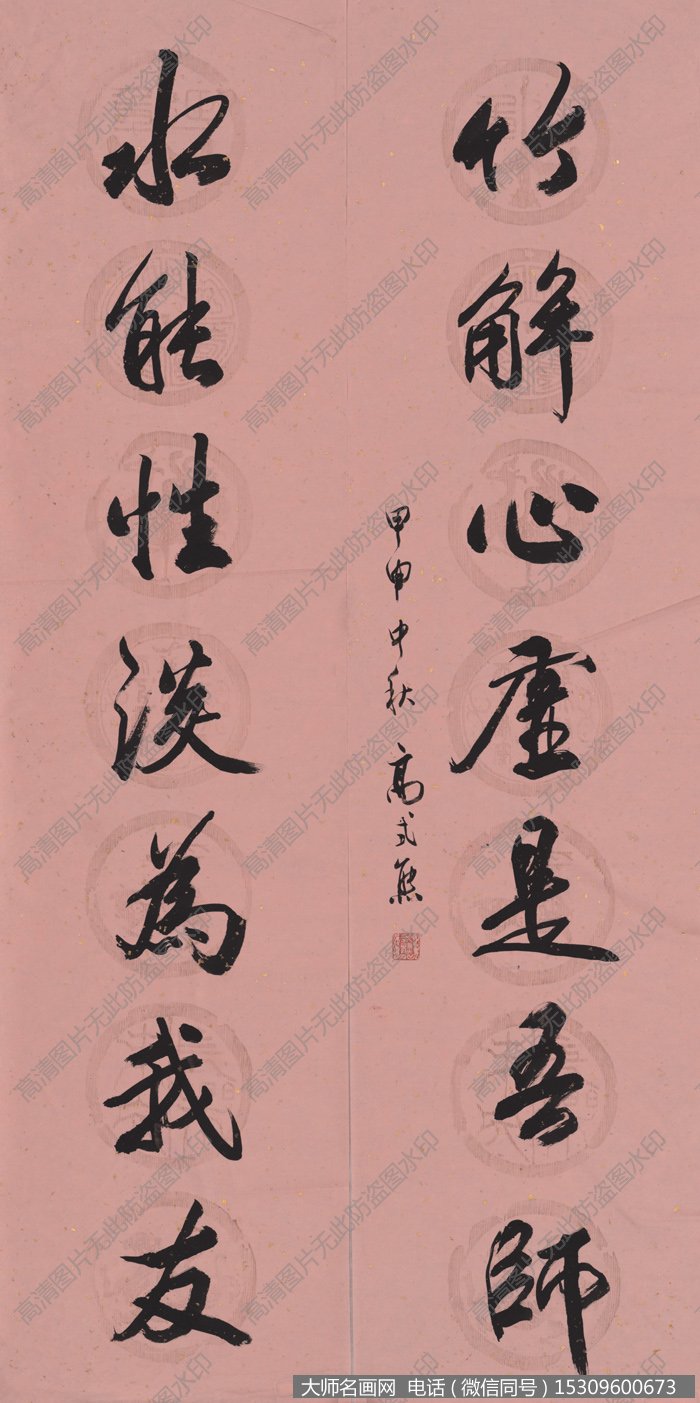 竹解心虚是吾師
水能性淡為我友
甲申中秋 高式熊
高清图片无此防盗图水印
大师名画网 电话（微信同号）15309600673